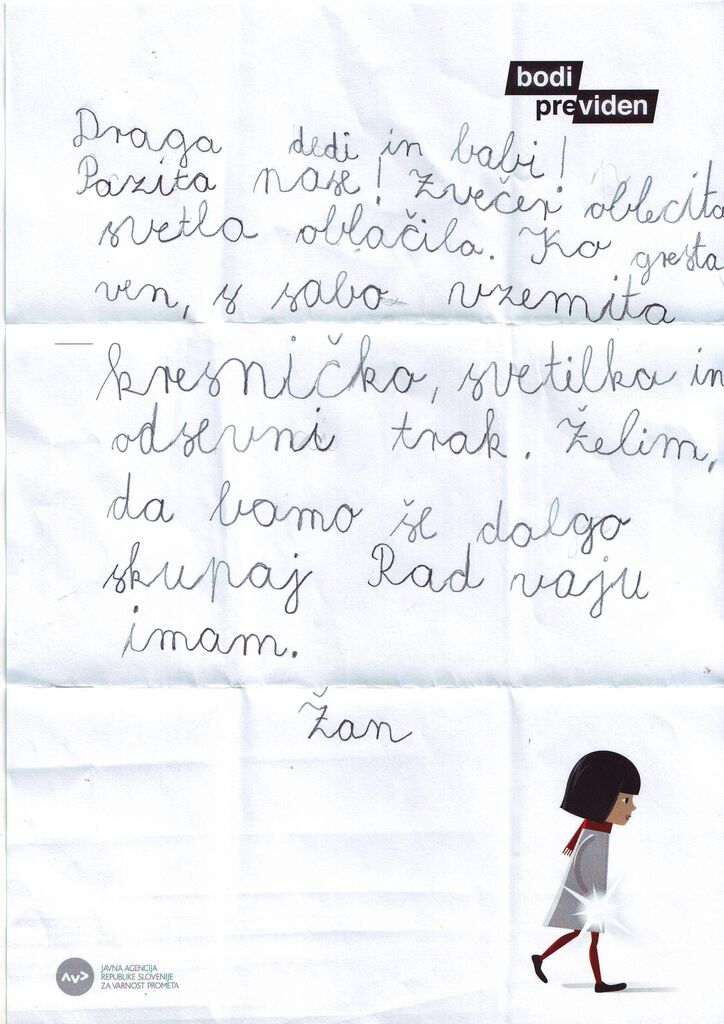 bodi
previden
Draga dedi in babi!
Pazita nase! Zvečer oblecita
svetla oblačila. Ko gresta
ven, s sabo vzemita
kresničko, svetilka in
odsevni trak. Želim,
da bomo še dolgo
skupaj Rad vaju
imam.
Žan
AVP
JAVNA AGENCIJA
REPUBLIKE SLOVENIJE
ZA VARNOST PROMETA